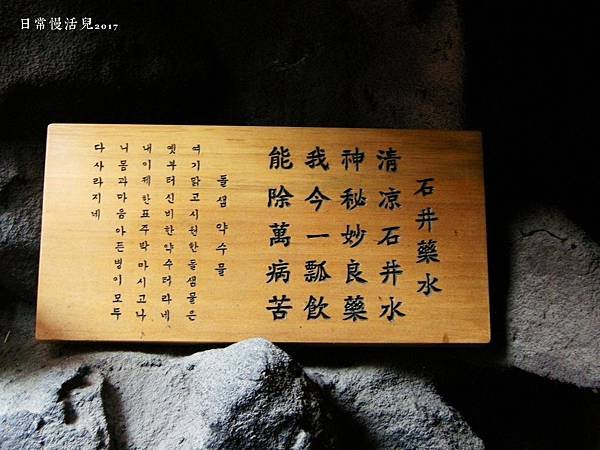 日常慢活兒2017
石井藥水
清凉石井水
神秘妙良藥
我今一瓢飮
能除萬病苦
돌샘 약수물
여기맑고시원한돌샘물은
옛부터신비한약수터라네
내이제한표주박마시고나
니몸과마음아든병이모두
다사라지네